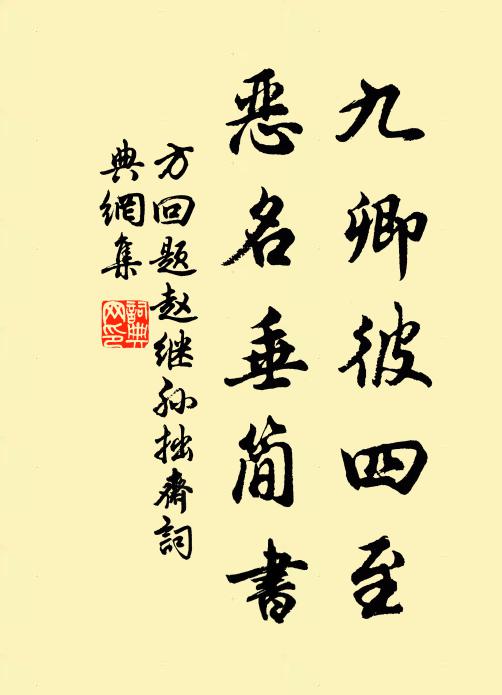 九卿彼四至
恶名垂简书
方回题赵继孙拙斋词
典網集
詞典
网印